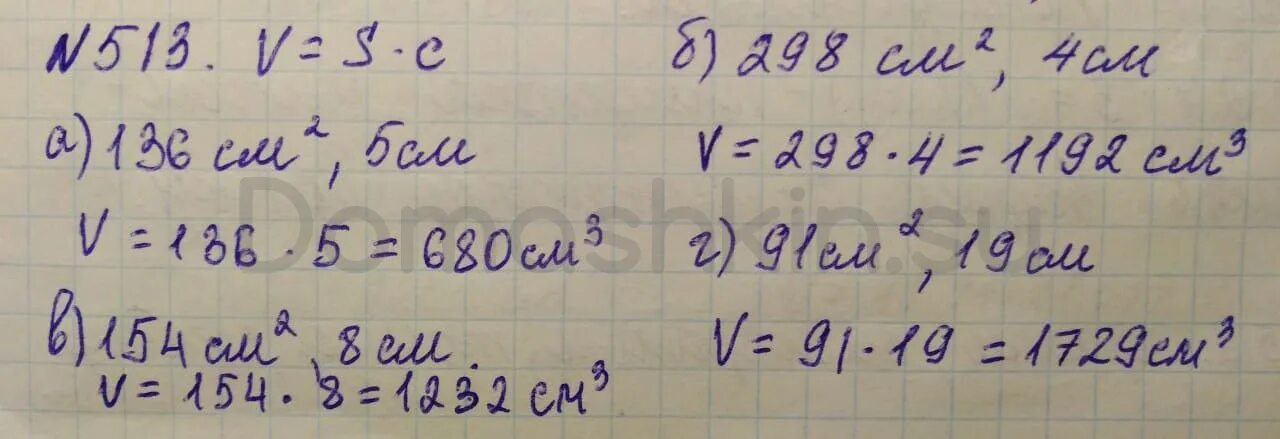 N513. V = S · c
а) 136 см², 5см
V = 136 · 5 = 680см³
в) 154 см², 8 см.
V = 154 · 8 = 1232 см³
б) 298 см², 4см
V = 298 · 4 = 1192 см³
г) 91см², 19 см
V = 91 · 19 = 1729см³
Domoshkin.su